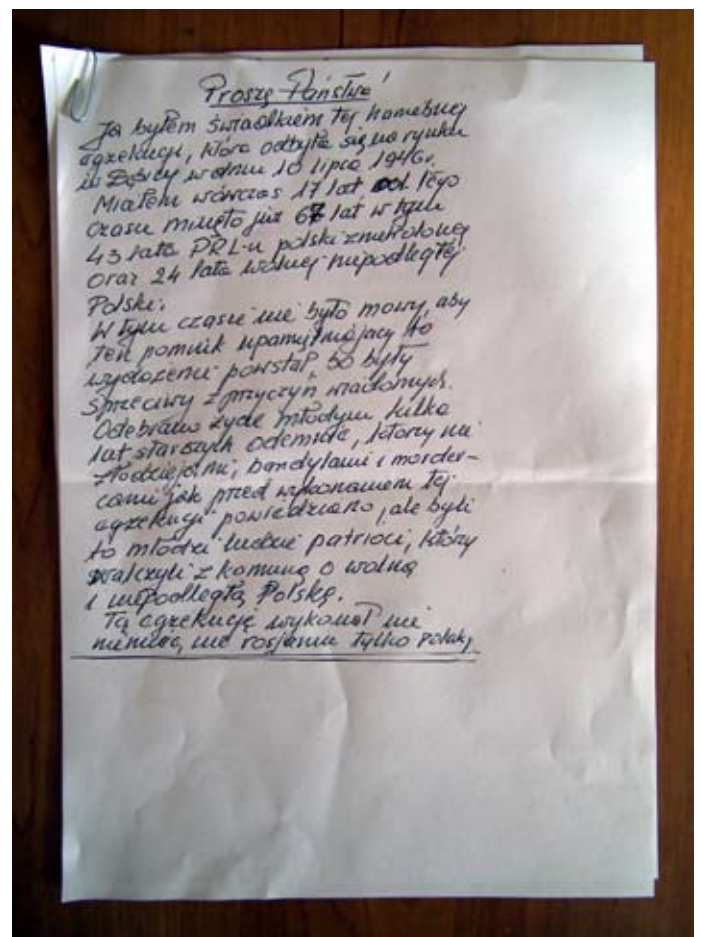 Proszę Państwa!
Ja byłem świadkiem tej hamebnej
egzekucji, która odbyła się na rynku
w Dębicy w dniu 10 lipca 1946r.
Miałem wówczas 17 lat od tego
czasu minęło już 67 lat w tym
43 lata PRL-u polski zniewolonej
oraz 24 lata wolnej niepodległej
Polski.
W tym czasie nie było mowy, aby
ten pomnik upamiętniający to
wydarzenie powstał, bo były
sprzeciwy z przyczyn wiadomych.
Odebrano życie młodym kilka
lat starszych odemnie, którzy nie
złodziejami, bandytami i morder-
cami jak przed wykonaniem tej
egzekucji powiedziano, ale byli
to młodzi ludzie patrioci, którzy
walczyli z komuną o wolną
i niepodległą Polskę.
Tą egzekucję wykonał nie
niemiec, nie rosjanin tylko polak,